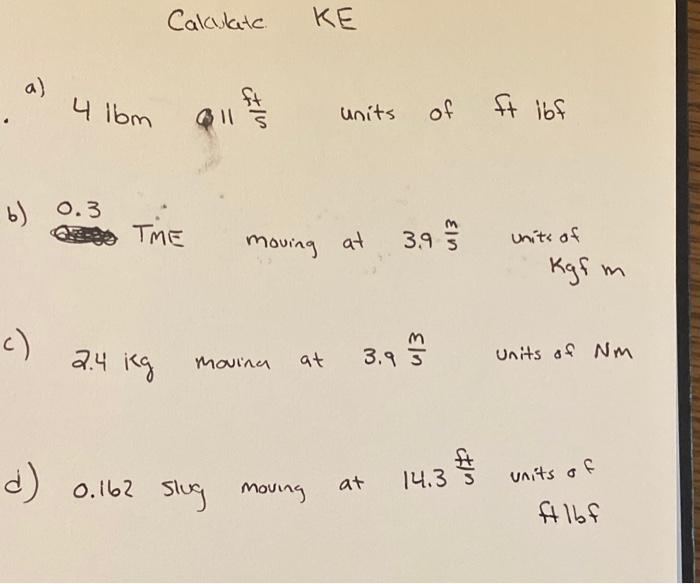 Calculate KE
a) 4 lbm @ 11 ft/s units of ft lbf
b) 0.3 TME moving at 3.9 m/s units of
Kgf m
c) 2.4 kg moving at 3.9 m/s units of Nm
d) 0.162 slug moving at 14.3 ft/s units of
ft lbf